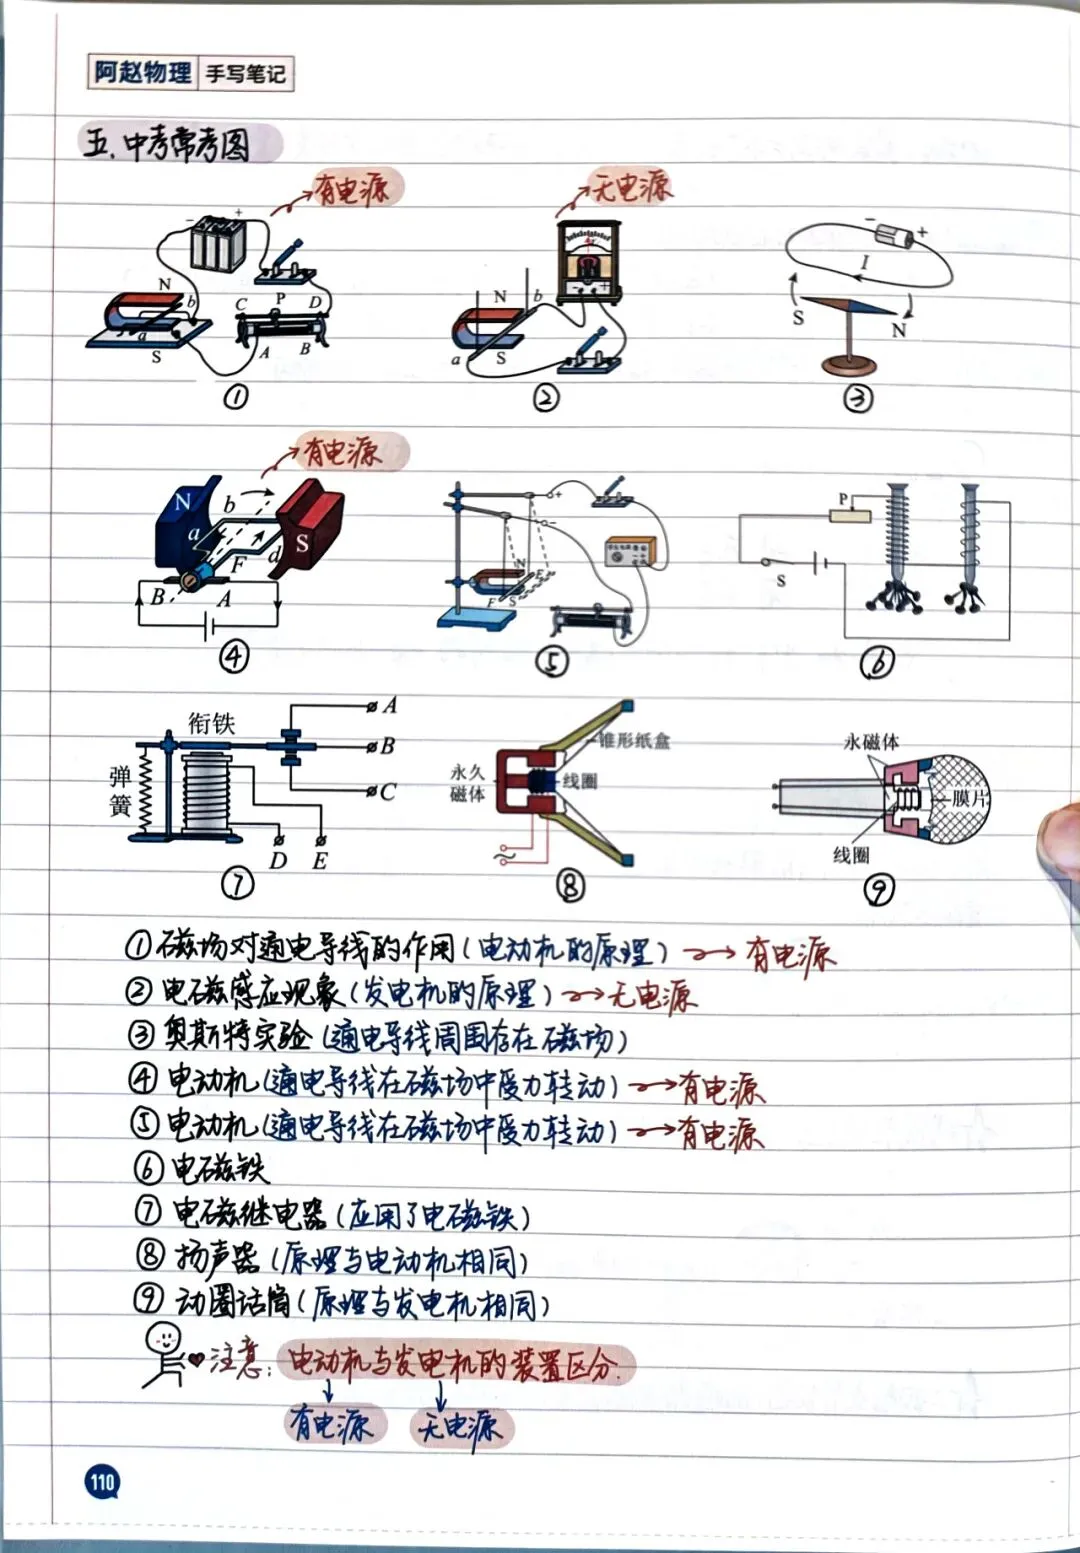 阿赵物理 手写笔记
五.中考常考图
有电源 无电源
- + N b a S C P D A B
N b a S - +
- + I S N
① ② ③
有电源
N b a S d F B A
+ - N F F S
P S
④ ⑤ ⑥
衔铁 弹簧 A B C D E
永久磁体 锥形纸盒 线圈
永磁体 膜片 线圈
⑦ ⑧ ⑨
①磁场对通电导线的作用(电动机的原理)→有电源
②电磁感应现象(发电机的原理)→无电源
③奥斯特实验(通电导线周围存在磁场)
④电动机(通电导线在磁场中受力转动)→有电源
⑤电动机(通电导线在磁场中受力转动)→有电源
⑥电磁铁
⑦电磁继电器(应用了电磁铁)
⑧扬声器(原理与电动机相同)
⑨动圈话筒(原理与发电机相同)
注意:电动机与发电机的装置区分.
有电源 无电源
110